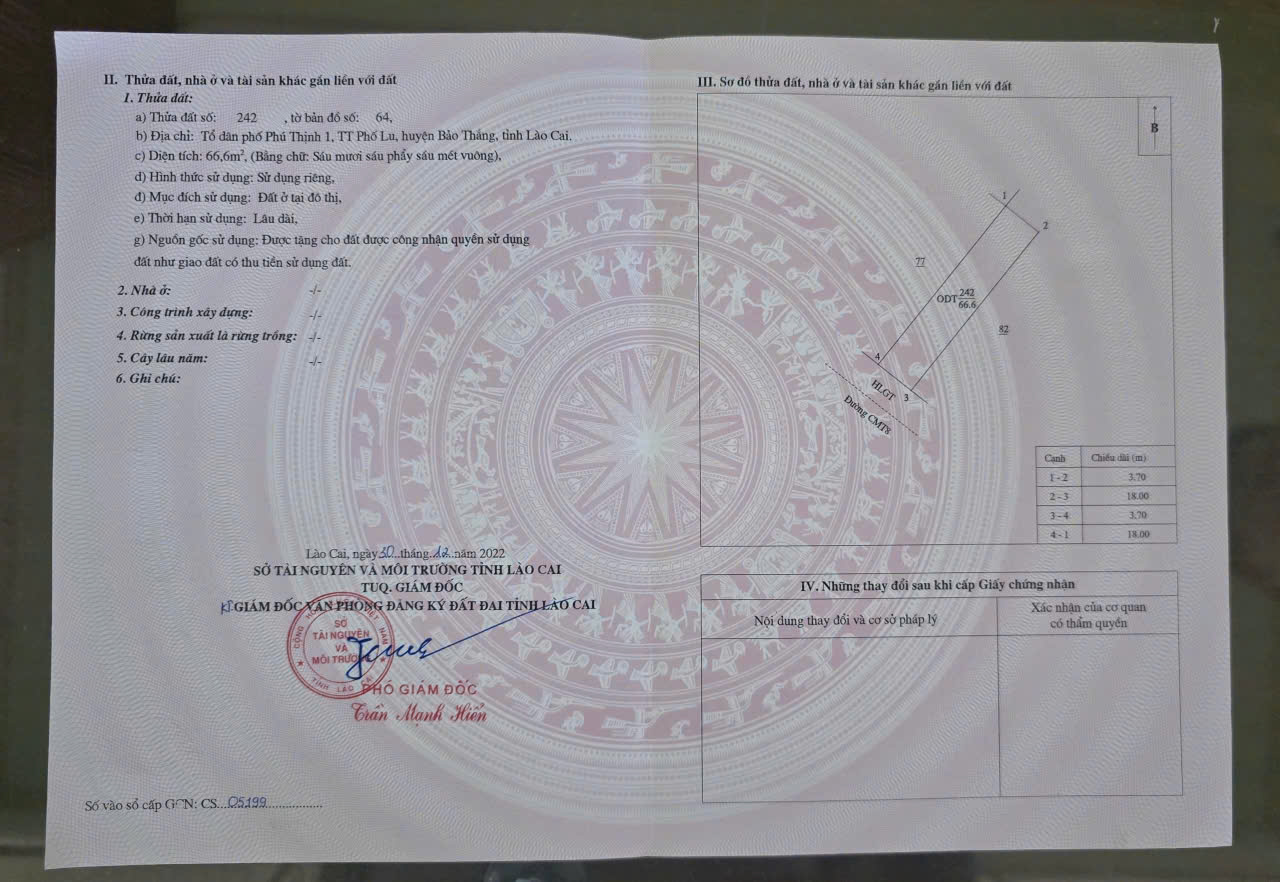 II. Thửa đất, nhà ở và tài sản khác gắn liền với đất
1. Thửa đất:
a) Thửa đất số: 242 , tờ bản đồ số: 64,
b) Địa chỉ: Tổ dân phố Phú Thịnh 1, TT Phố Lu, huyện Bảo Thắng, tỉnh Lào Cai.
c) Diện tích: 66,6m², (Bằng chữ: Sáu mươi sáu phẩy sáu mét vuông),
d) Hình thức sử dụng: Sử dụng riêng,
đ) Mục đích sử dụng: Đất ở tại đô thị,
e) Thời hạn sử dụng: Lâu dài,
g) Nguồn gốc sử dụng: Được tặng cho đất được công nhận quyền sử dụng
đất như giao đất có thu tiền sử dụng đất.
2. Nhà ở: -/-
3. Công trình xây dựng: -/-
4. Rừng sản xuất là rừng trồng: -/-
5. Cây lâu năm: -/-
6. Ghi chú:
Lào Cai, ngày 30 tháng 12 năm 2022
SỞ TÀI NGUYÊN VÀ MÔI TRƯỜNG TỈNH LÀO CAI
TUQ. GIÁM ĐỐC
KT GIÁM ĐỐC VĂN PHÒNG ĐĂNG KÝ ĐẤT ĐAI TỈNH LÀO CAI
SỞ
TÀI NGUYÊN
VÀ
MÔI TRƯỜNG
TỈNH LÀO CAI
PHÓ GIÁM ĐỐC
Trần Mạnh Hiển
Số vào sổ cấp GCN: CS...05199
III. Sơ đồ thửa đất, nhà ở và tài sản khác gắn liền với đất
B
1
2
77
ODT 242
66.6
82
4
HLGT 3
Đường CMT8
Cạnh Chiều dài (m)
1 - 2 3.70
2 - 3 18.00
3 - 4 3.70
4 - 1 18.00
IV. Những thay đổi sau khi cấp Giấy chứng nhận
Nội dung thay đổi và cơ sở pháp lý
Xác nhận của cơ quan
có thẩm quyền